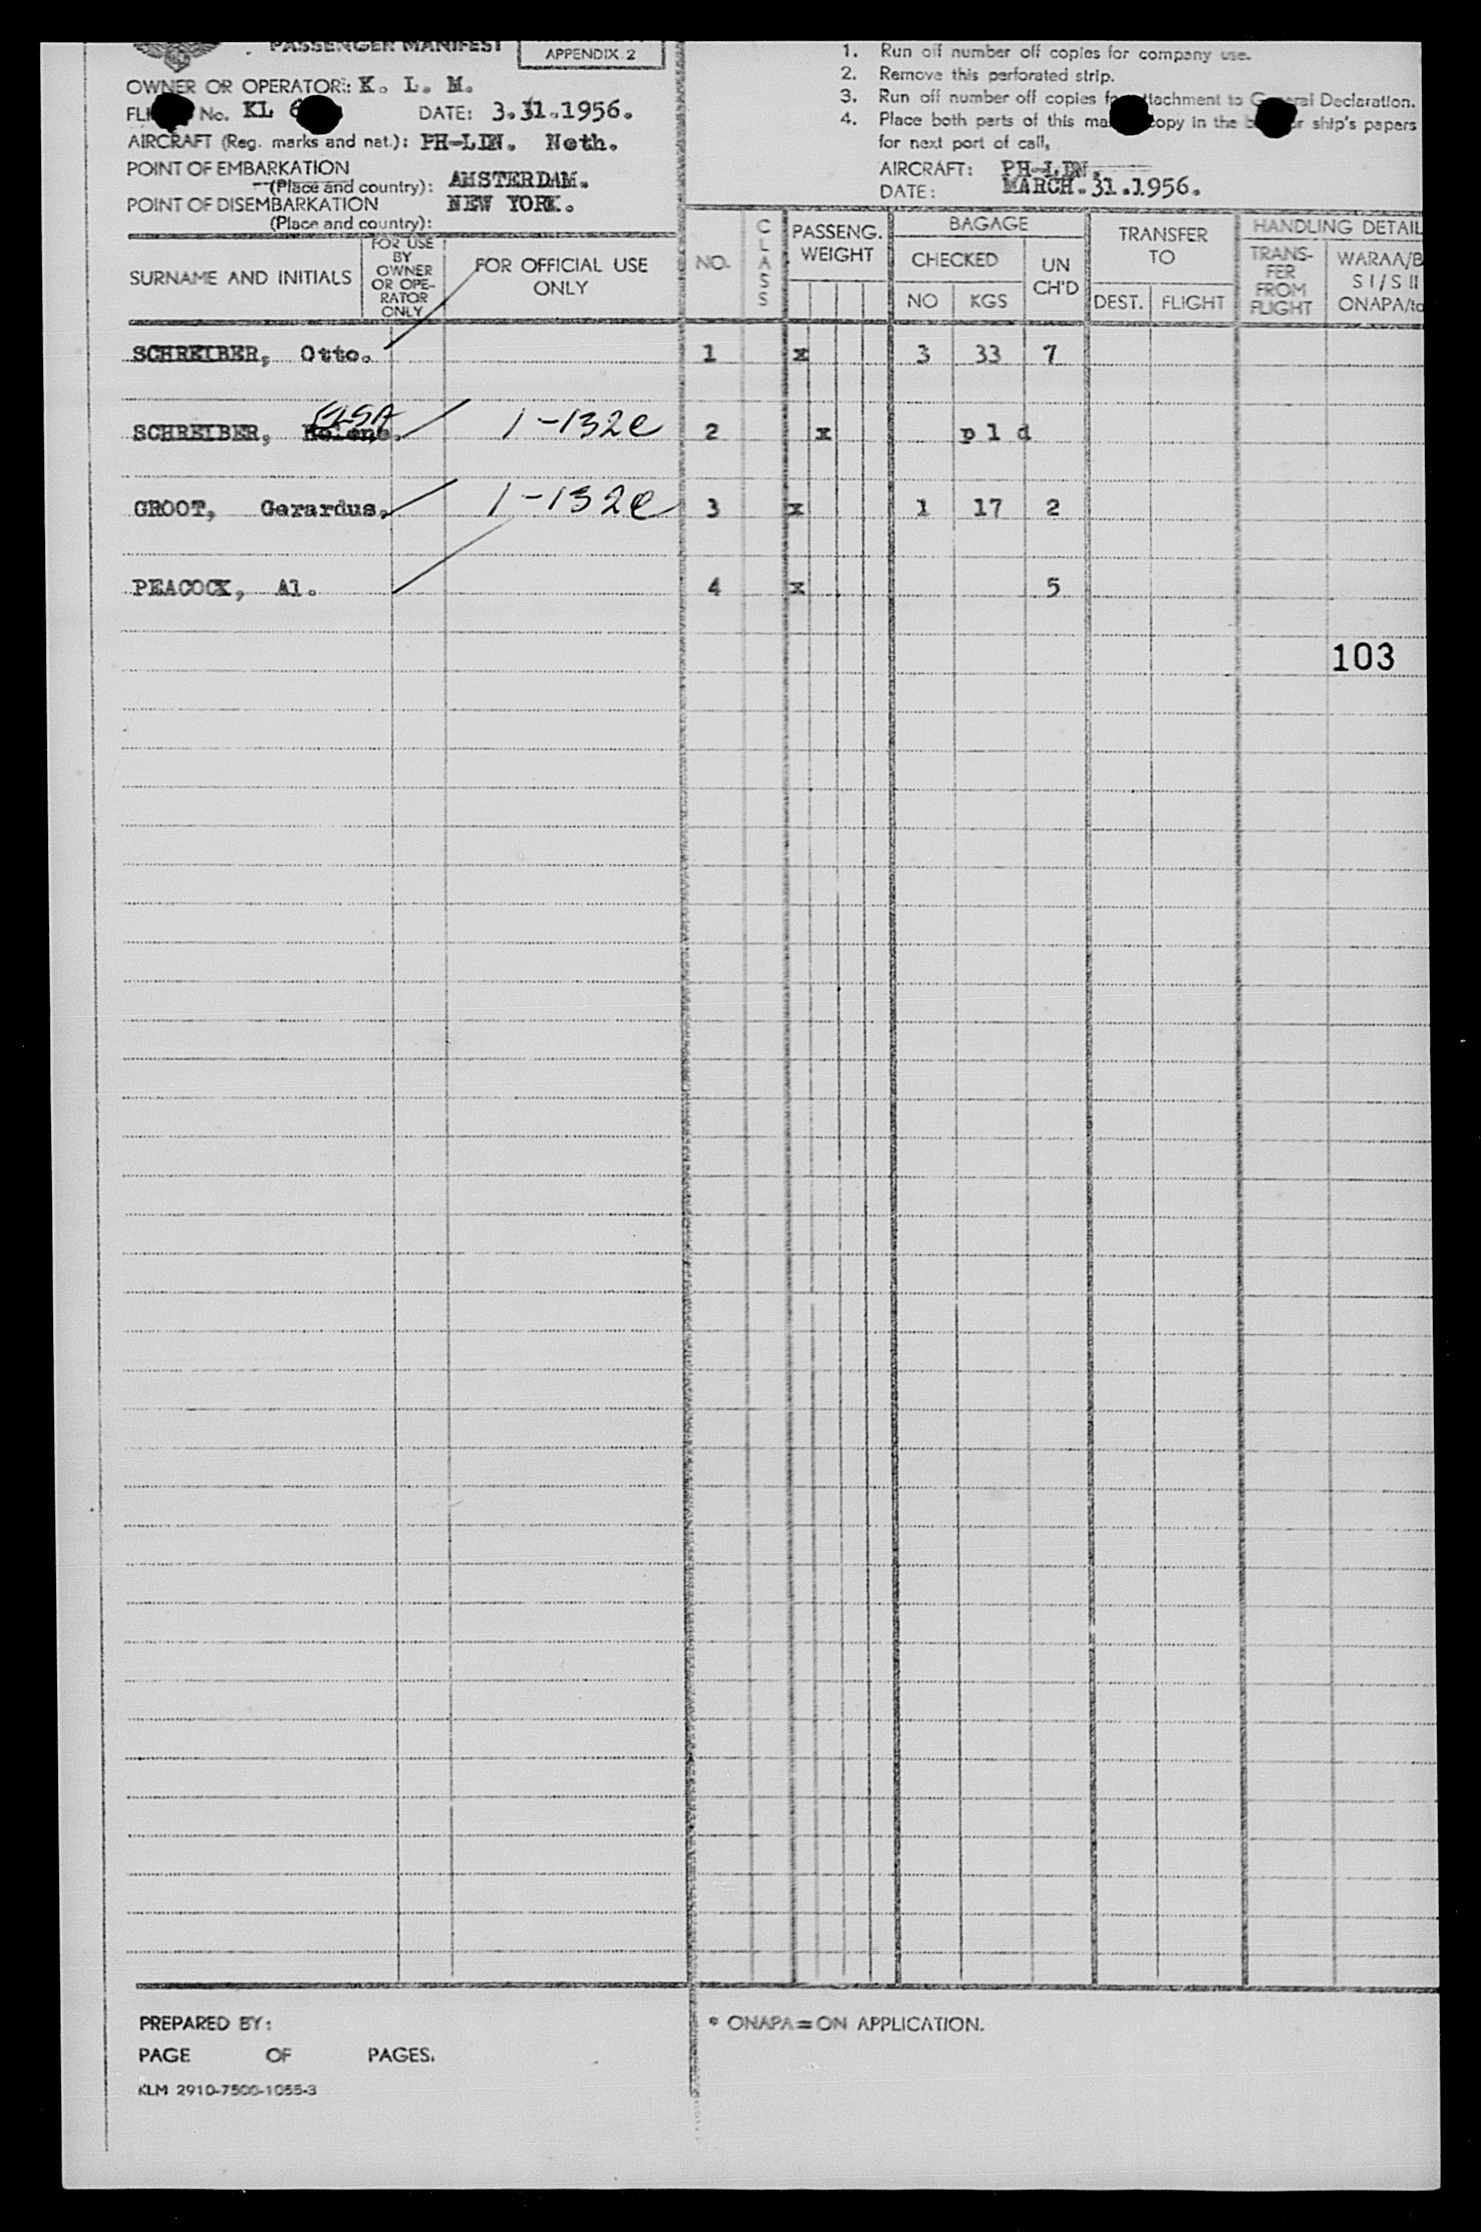 PASSENGER MANIFEST
APPENDIX 2
OWNER OR OPERATOR: K. L. M.
No. KL DATE: 3.31.1956.
AIRCRAFT (Reg. marks and nat.): PH-LIN. Neth.
POINT OF EMBARKATION
(Place and country): AMSTERDAM.
POINT OF DISEMBARKATION NEW YORK.
(Place and country):
1. Run off number off copies for company use.
2. Remove this perforated strip.
3. Run off number off copies attachment to General Declaration.
4. Place both parts of this copy in the ship's papers
for next port of call,
AIRCRAFT: PH-LIN.
DATE: MARCH.31.1956.
SURNAME AND INITIALS
FOR USE
BY
OWNER
OR OPE-
RATOR
ONLY
FOR OFFICIAL USE
ONLY
NO.
CLASS
PASSENG.
WEIGHT
BAGAGE
CHECKED
NO KGS
UN
CH'D
TRANSFER
TO
DEST. FLIGHT
HANDLING DETAIL
TRANS-
FER
FROM
FLIGHT
WARAA/B
S I / S II
ONAPA/to
SCHREIBER, Otto. 1 x 3 33 7
ELSA
SCHREIBER, Helene. 1-132e 2 x p l d
GROOT, Gerardus. 1-132e 3 x 1 17 2
PEACOCK, Al. 4 x 5
103
PREPARED BY:
* ONAPA=ON APPLICATION.
PAGE OF PAGES.
KLM 2910-7500-1055-3